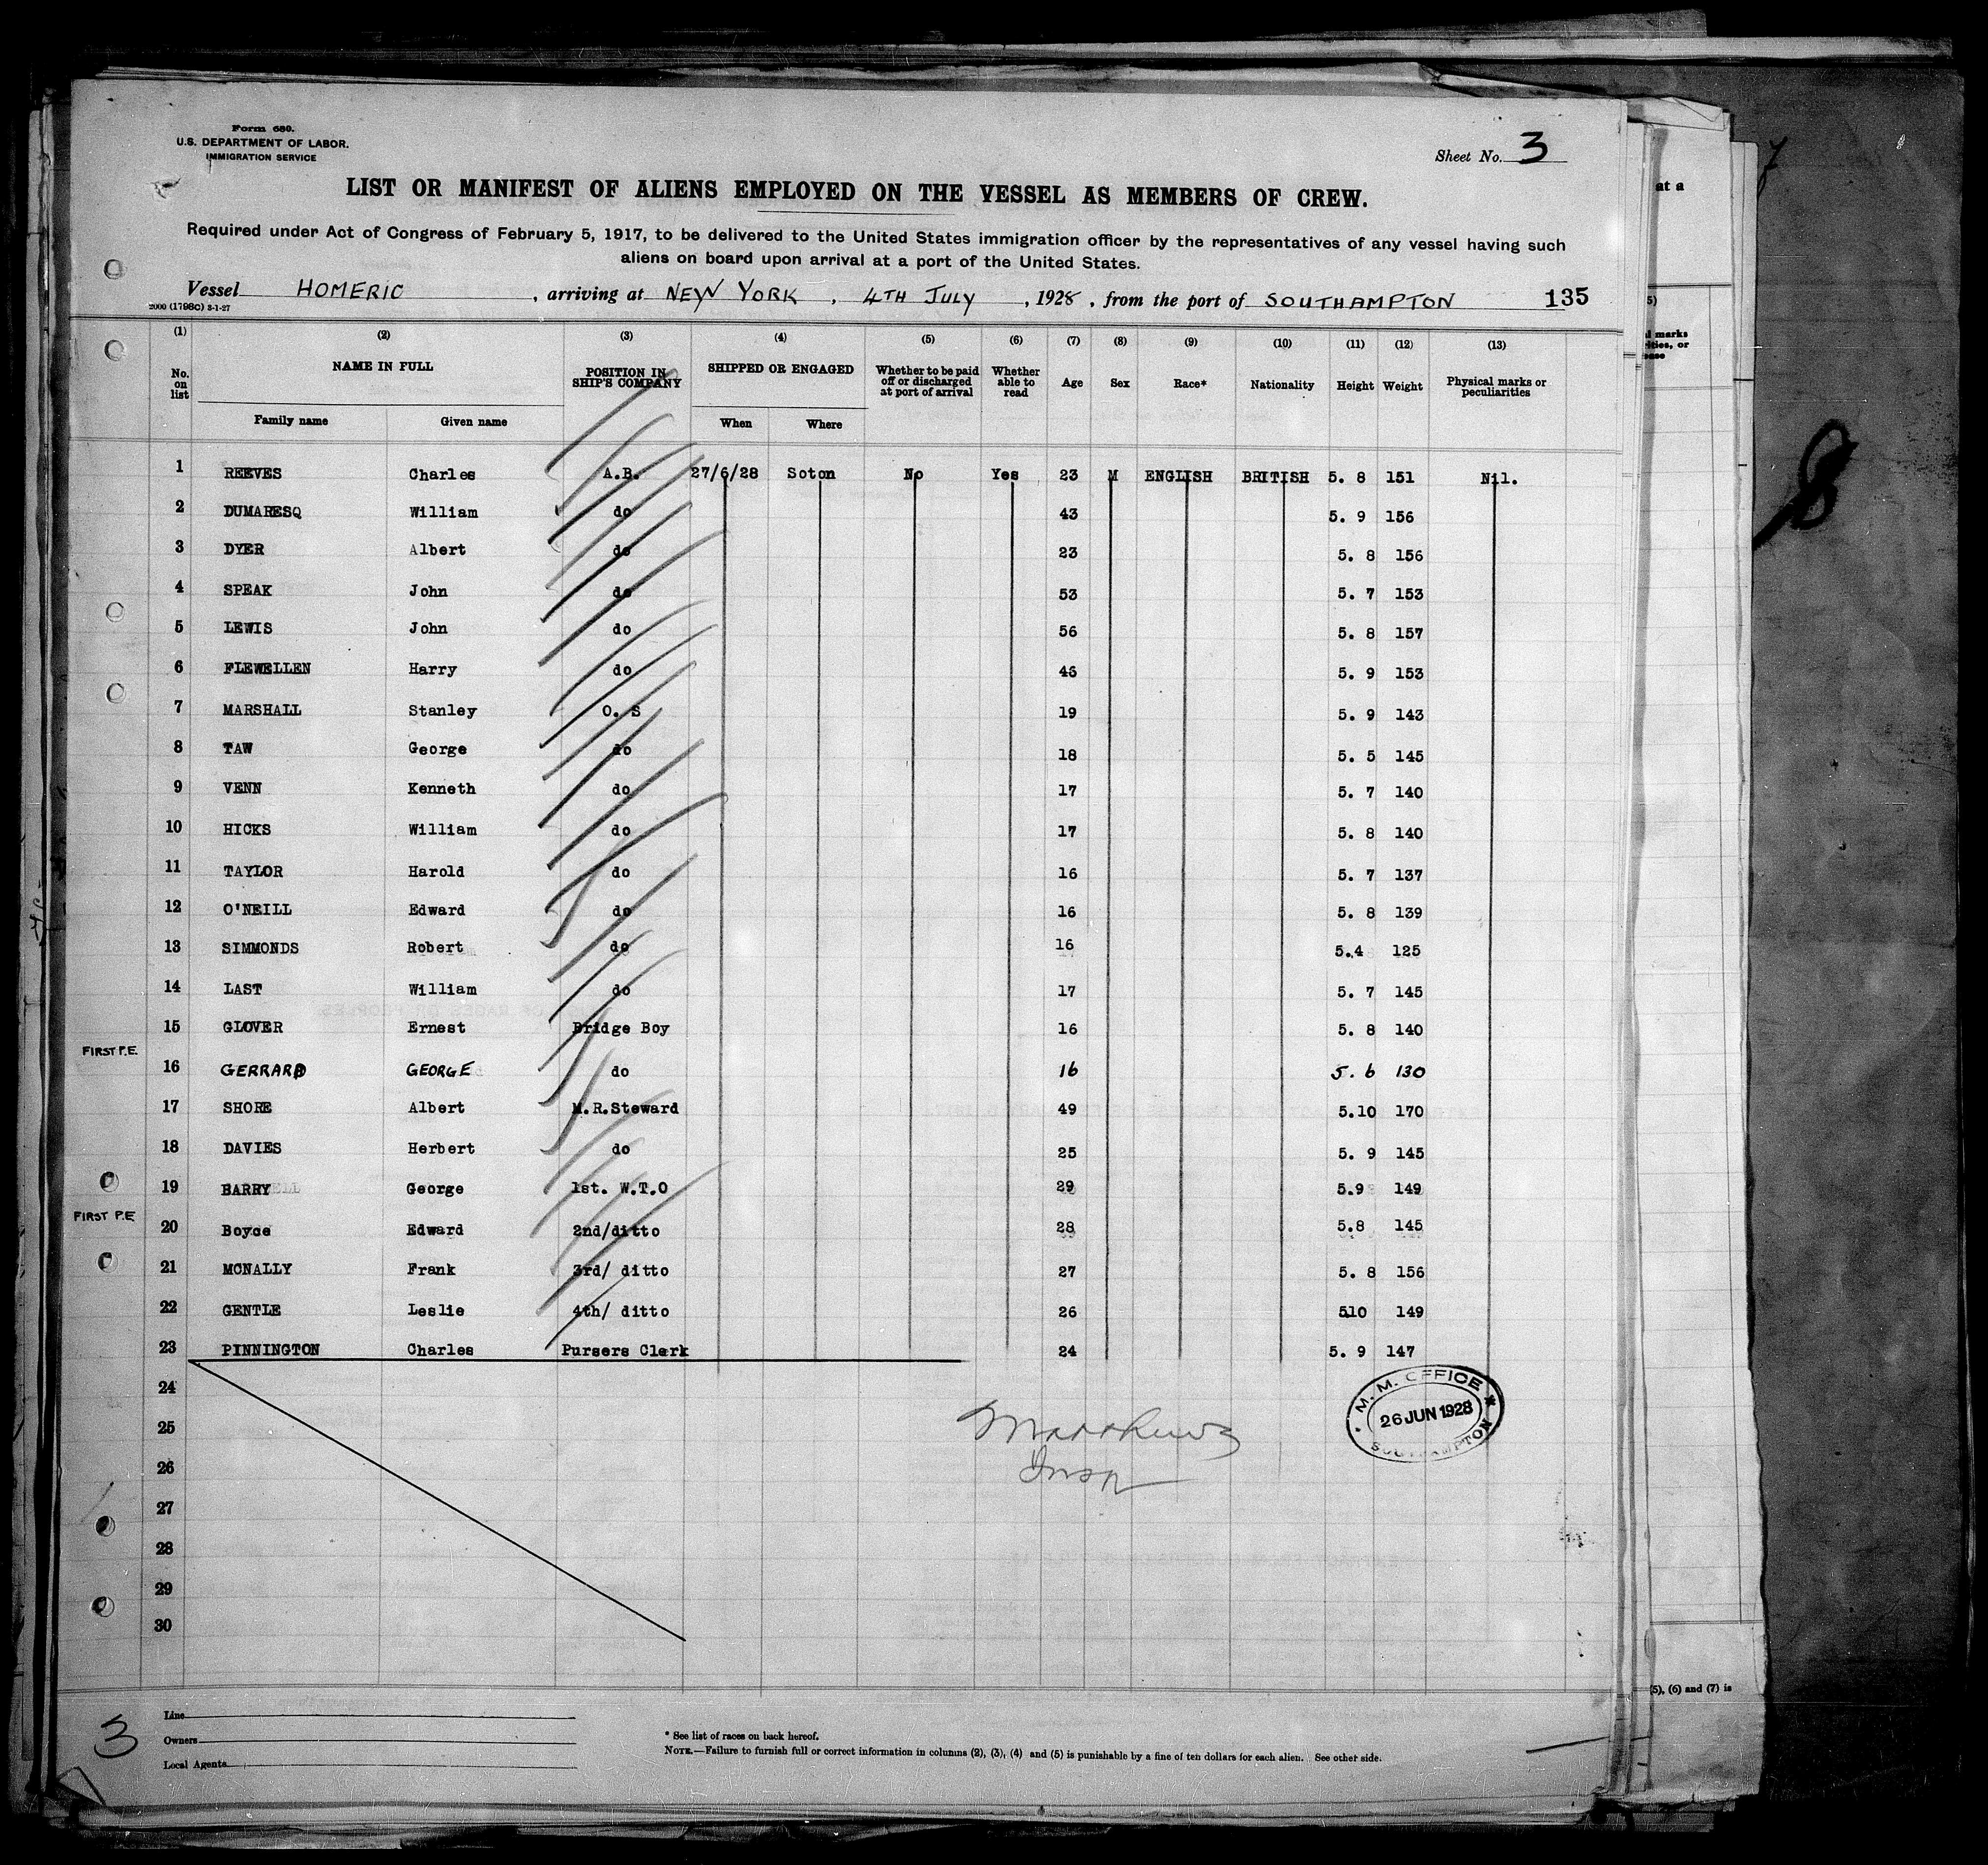 Form 680.
U.S. DEPARTMENT OF LABOR.
IMMIGRATION SERVICE
Sheet No. 3
LIST OR MANIFEST OF ALIENS EMPLOYED ON THE VESSEL AS MEMBERS OF CREW.
Required under Act of Congress of February 5, 1917, to be delivered to the United States immigration officer by the representatives of any vessel having such
aliens on board upon arrival at a port of the United States.
Vessel HOMERIC, arriving at NEW YORK, 4TH JULY, 1928, from the port of SOUTHAMPTON 135
2000 (1798c) 3-1-27
(1) (2) (3) (4) (5) (6) (7) (8) (9) (10) (11) (12) (13)
No. on list NAME IN FULL POSITION IN SHIP'S COMPANY SHIPPED OR ENGAGED Whether to be paid off or discharged at port of arrival Whether able to read Age Sex Race* Nationality Height Weight Physical marks or peculiarities
Family name Given name When Where
1 REEVES Charles A.B. 27/6/28 Soton No Yes 23 M ENGLISH BRITISH 5. 8 151 Nil.
2 DUMARESQ William do 43 5. 9 156
3 DYER Albert do 23 5. 8 156
4 SPEAK John do 53 5. 7 153
5 LEWIS John do 56 5. 8 157
6 FLEWELLEN Harry do 46 5. 9 153
7 MARSHALL Stanley O. S 19 5. 9 143
8 TAW George do 18 5. 5 145
9 VENN Kenneth do 17 5. 7 140
10 HICKS William do 17 5. 8 140
11 TAYLOR Harold do 16 5. 7 137
12 O'NEILL Edward do 16 5. 8 139
13 SIMMONDS Robert do 16 5.4 125
14 LAST William do 17 5. 7 145
15 GLOVER Ernest Bridge Boy 16 5. 8 140
FIRST P.E.
16 GERRARD GEORGE do 16 5. 6 130
17 SHORE Albert M.R.Steward 49 5.10 170
18 DAVIES Herbert do 25 5. 9 145
19 BARRY George 1st. W.T.O 29 5.9 149
FIRST P.E
20 Boyce Edward 2nd/ditto 28 5.8 145
21 MCNALLY Frank 3rd/ ditto 27 5. 8 156
22 GENTLE Leslie 4th/ ditto 26 510 149
23 PINNINGTON Charles Pursers Clerk 24 5. 9 147
24
25
26
27
28
29
30
M. M. OFFICE
26 JUN 1928
SOUTHAMPTON
Matthews
Insp
3
Line
Owners
Local Agents
* See list of races on back hereof.
NOTE.—Failure to furnish full or correct information in columns (2), (3), (4) and (5) is punishable by a fine of ten dollars for each alien. See other side.
at a
(5), (6) and (7) is